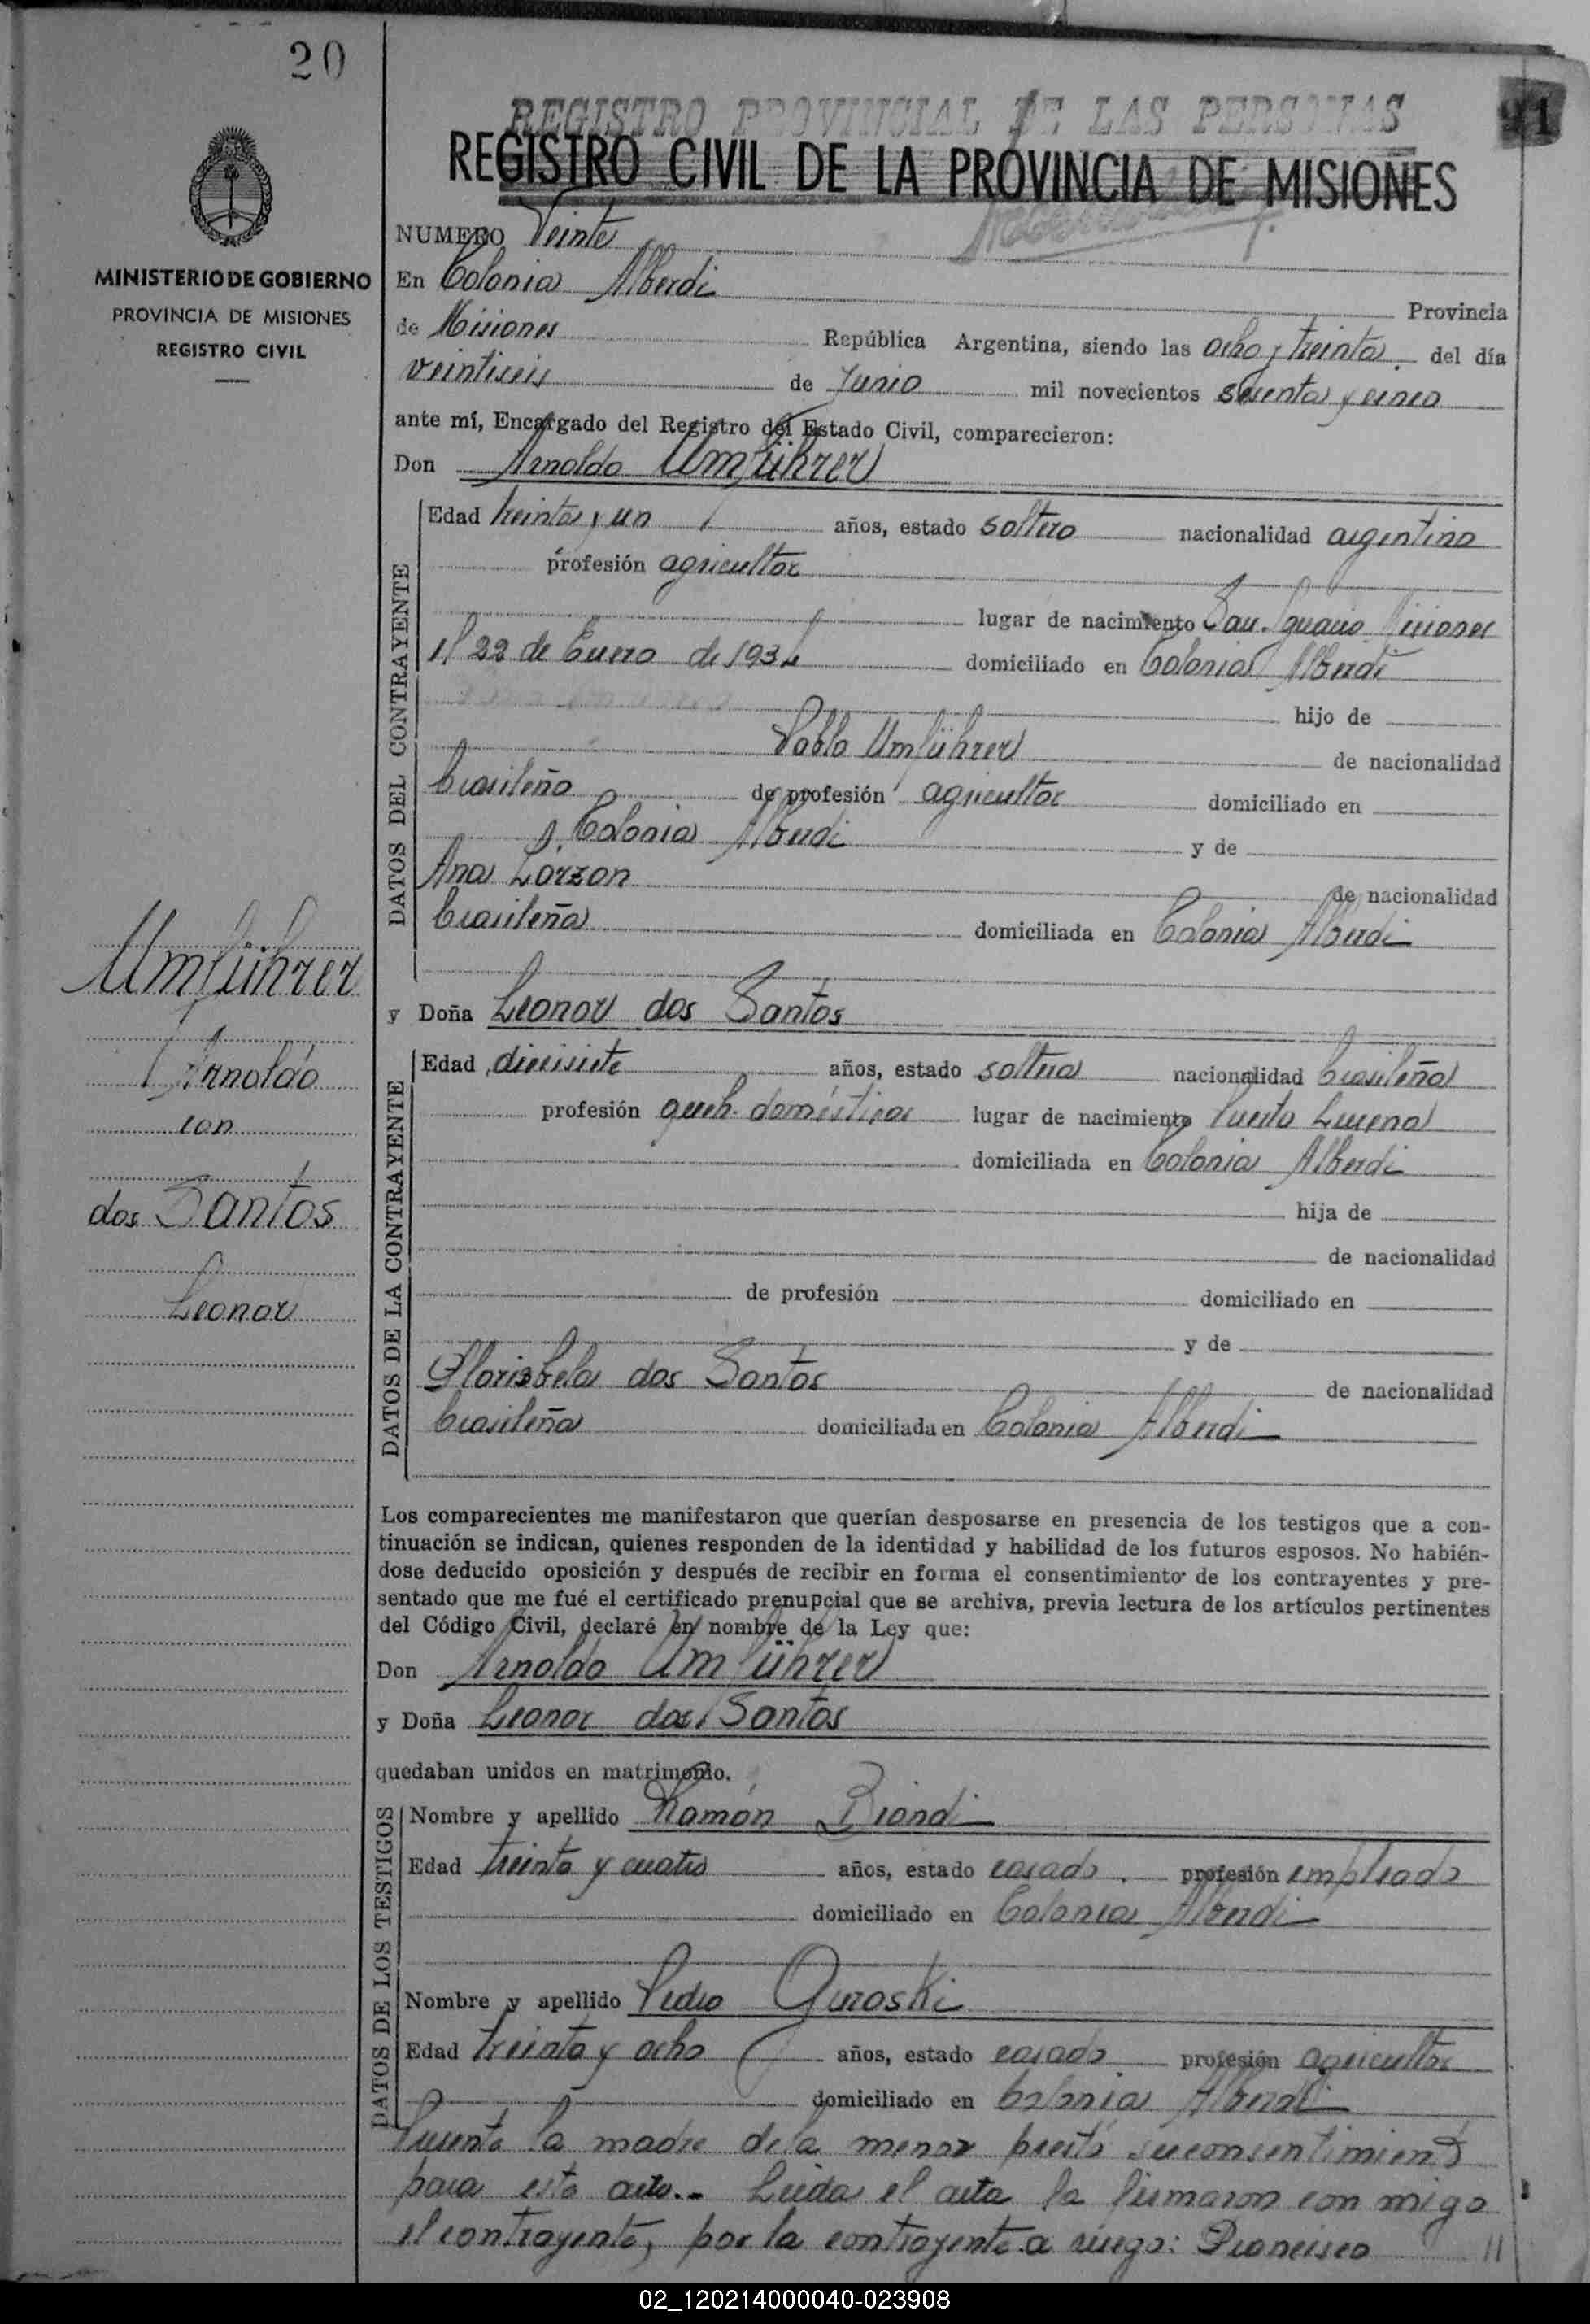 20
91
REGISTRO PROVINCIAL DE LAS PERSONAS
REGISTRO CIVIL DE LA PROVINCIA DE MISIONES
MINISTERIO DE GOBIERNO
PROVINCIA DE MISIONES
REGISTRO CIVIL
NUMERO Veinte
En Colonia Alberdi
Provincia
de Misiones República Argentina, siendo las ocho y treinta del día
veintiseis de Junio mil novecientos sesenta y cinco
ante mí, Encargado del Registro del Estado Civil, comparecieron:
Don Arnoldo Umführer
DATOS DEL CONTRAYENTE
Edad treinta y un años, estado soltero nacionalidad argentino
profesión agricultor
lugar de nacimiento San Ignacio Misiones
el 22 de Enero de 1934 domiciliado en Colonia Alberdi
hijo de
Pablo Umführer de nacionalidad
brasileño de profesión agricultor domiciliado en
Colonia Alberdi y de
Ana Lorzon de nacionalidad
brasileña domiciliada en Colonia Alberdi
Umführer
Arnoldo
con
dos Santos
Leonor
y Doña Leonor dos Santos
DATOS DE LA CONTRAYENTE
Edad diecisiete años, estado soltera nacionalidad brasileña
profesión queh. domésticos lugar de nacimiento Puerto Lucena
domiciliada en Colonia Alberdi
hija de
de nacionalidad
de profesión domiciliado en
y de
Florisbela dos Santos de nacionalidad
brasileña domiciliada en Colonia Alberdi
Los comparecientes me manifestaron que querían desposarse en presencia de los testigos que a con-
tinuación se indican, quienes responden de la identidad y habilidad de los futuros esposos. No habién-
dose deducido oposición y después de recibir en forma el consentimiento de los contrayentes y pre-
sentado que me fué el certificado prenupcial que se archiva, previa lectura de los artículos pertinentes
del Código Civil, declaré en nombre de la Ley que:
Don Arnoldo Umführer
y Doña Leonor dos Santos
quedaban unidos en matrimonio.
DATOS DE LOS TESTIGOS
Nombre y apellido Ramón Biondi
Edad treinta y cuatro años, estado casado profesión empleado
domiciliado en Colonia Alberdi
Nombre y apellido Pedro Quroski
Edad treinta y ocho años, estado casado profesión agricultor
domiciliado en Colonia Alberdi
Presente la madre de la menor prestó su consentimiento
para este acto.- Leída el acta la firmaron con migo
el contrayente, por la contrayente a ruego: Francisco //
02_120214000040-023908